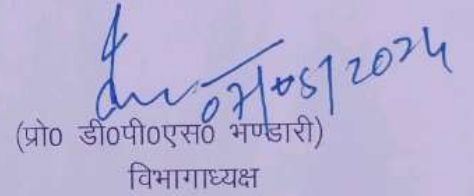 07/05/2024
(प्रो0 डी0पी0एस0 भण्डारी)
विभागाध्यक्ष